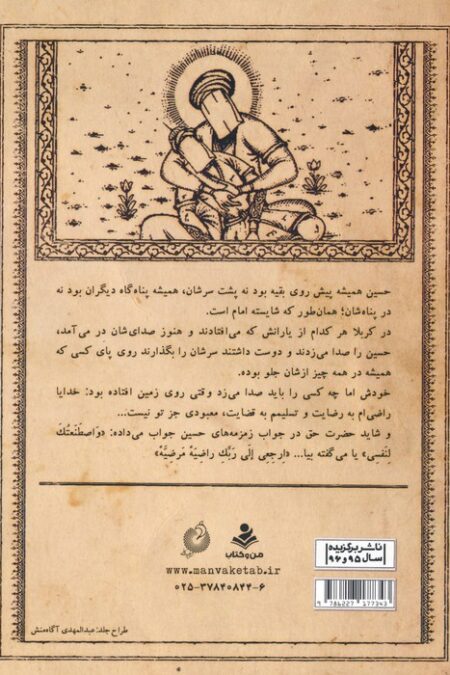 حسین همیشه پیش روی بقیه بود نه پشت سرشان، همیشه پناه‌گاه دیگران بود نه
در پناه‌شان؛ همان‌طور که شایسته امام است.
در کربلا هر کدام از یارانش که می‌افتادند و هنوز صدای‌شان در می‌آمد،
حسین را صدا می‌زدند و دوست داشتند سرشان را بگذارند روی پای کسی که
همیشه در همه چیز ازشان جلو بوده.
خودش اما چه کسی را باید صدا می‌زد وقتی روی زمین افتاده بود: خدایا
راضی‌ام به رضایت و تسلیمم به قضایت، معبودی جز تو نیست...
و شاید حضرت حق در جواب زمزمه‌های حسین جواب می‌داده: «وَاصطَنَعتُكَ
لِنَفسِی» یا می‌گفته بیا... «ارجِعِی إلَی رَبِّكِ راضِیَةً مَرضِیَّةً»
من و کتاب
www.manvaketab.ir
۰۲۵-۳۷۸۴۰۸۴۴-۶
ناشر برگزیده
سال ۹۵ و ۹۶
9 786227 177343
طراح جلد: عبدالمهدی آگاه‌منش